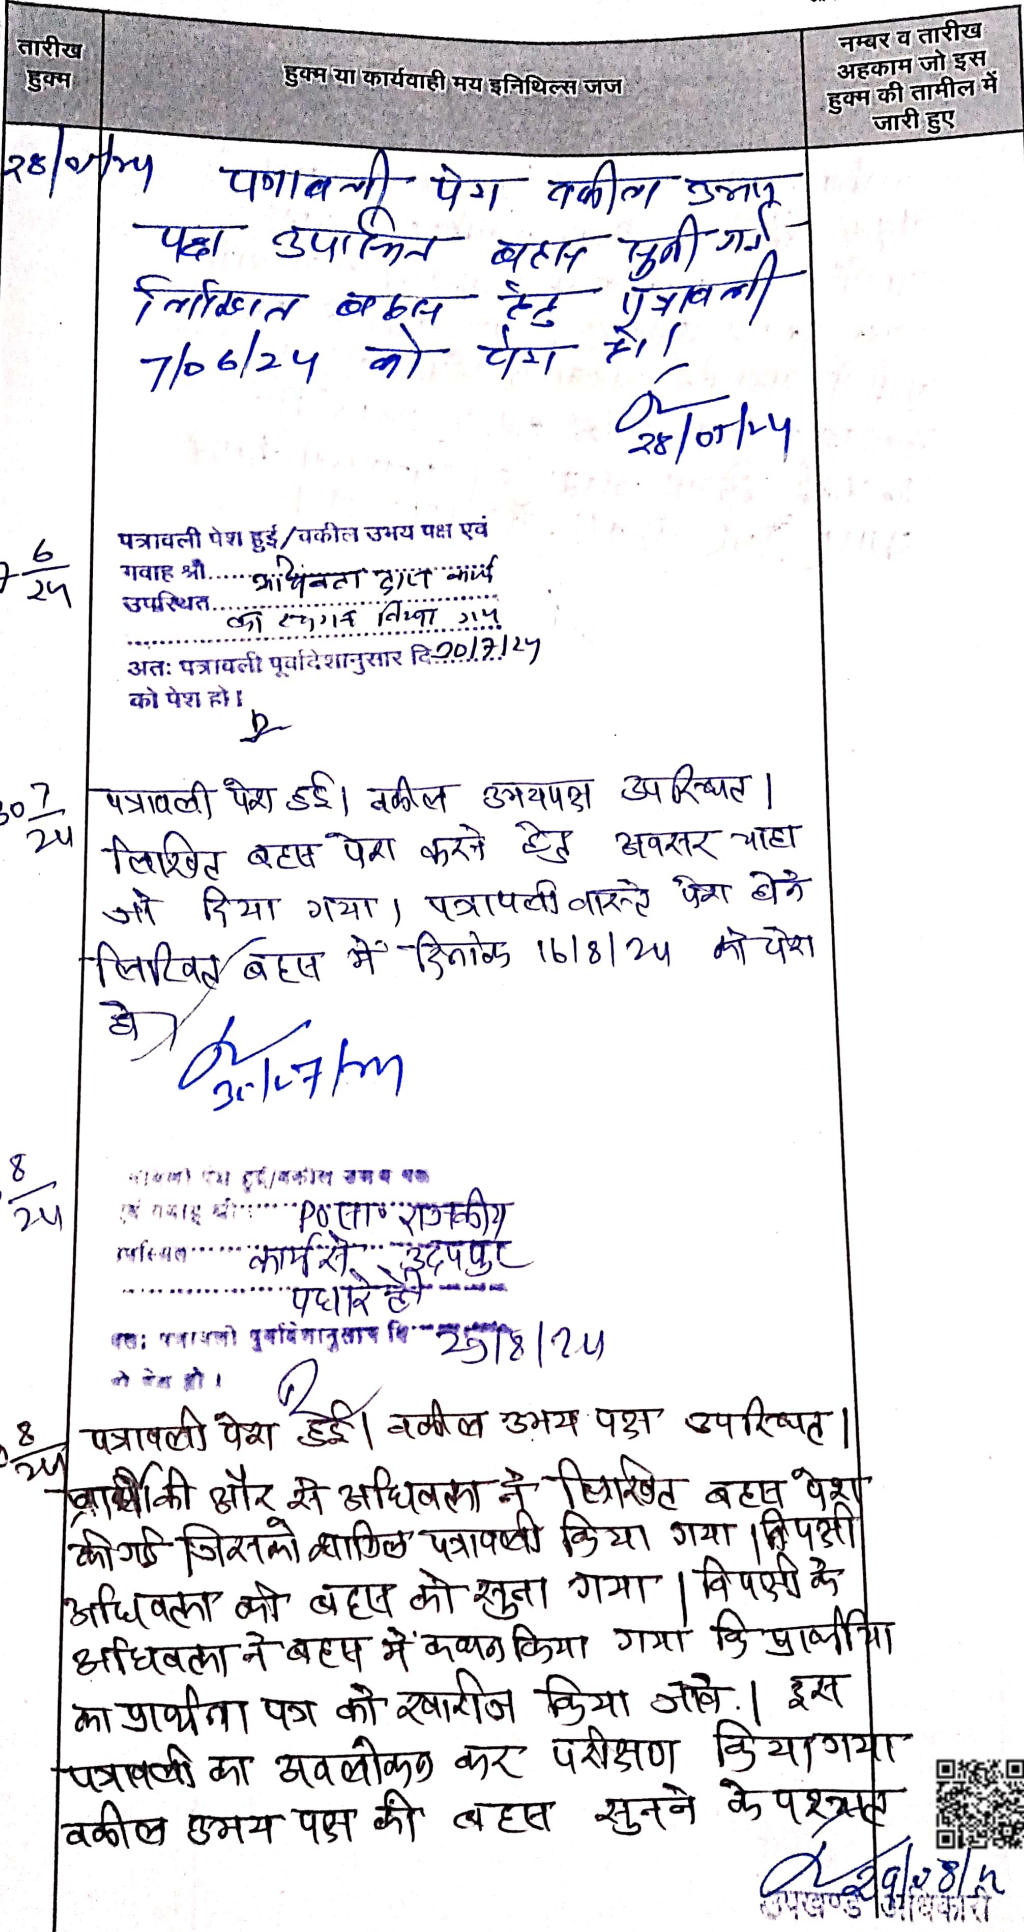 तारीख
हुक्म
हुक्म या कार्यवाही मय इनिथिल्स जज
नम्बर व तारीख
अहकाम जो इस
हुक्म की तामील में
जारी हुए
28/05/24 पत्रावली पेश वकील उभय
पक्ष उपस्थित बहस सुनी गई
लिखित बहस हेतु पत्रावली
7/06/24 को पेश हो।
28/05/24
6/24
पत्रावली पेश हुई/वकील उभय पक्ष एवं
गवाह श्री...... अधिवक्ता द्वारा कार्य
उपस्थित......
का स्थगन किया गया
अतः पत्रावली पूर्वादेशानुसार दि. 30/7/24
को पेश हो।
30 7/24 पत्रावली पेश हुई। वकील उभयपक्ष उपस्थित।
लिखित बहस पेश करने हेतु अवसर चाहा
जो दिया गया। पत्रावली वास्ते पेश होने
लिखित बहस में दिनांक 16/8/24 को पेश
हो
30/07/24
8/24
पत्रावली पेश हुई/वकील उभय पक्ष
एवं गवाह श्री...... राजकीय
उपस्थित...... कार्य से उदयपुर
पधारे है
अतः पत्रावली पूर्वादेशानुसार दि. /8/24
को पेश हो।
8/24 पत्रावली पेश हुई। वकील उभय पक्ष उपस्थित।
प्रार्थी की और से अधिवक्ता ने लिखित बहस पेश
की गई जिसको शामिल पत्रावली किया गया। विपक्षी
अधिवक्ता की बहस को सुना गया। विपक्षी के
अधिवक्ता ने बहस में कथन किया गया कि प्रार्थीया
का प्रार्थना पत्र को खारीज किया जावे। इस
पत्रावली का अवलोकन कर परीक्षण किया गया
वकील उभय पक्ष की बहस सुनने के पश्चात
उपखण्ड अधिकारी